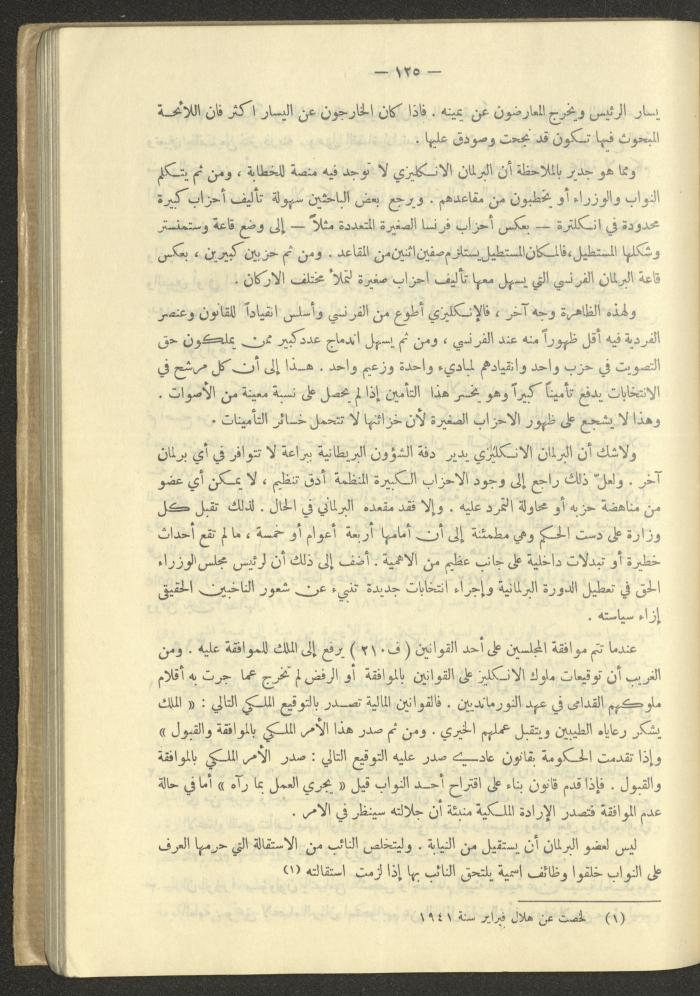 — ١٢٥ —
يسار الرئيس ويخرج المعارضون عن يمينه . فاذا كان الخارجون عن اليسار اكثر فان اللائحة
المبحوث فيها تكون قد نجحت وصودق عليها .
ومما هو جدير بالملاحظة أن البرلمان الانكليزي لا توجد فيه منصة للخطابة ، ومن ثم يتكلم
النواب والوزراء أو يخطبون من مقاعدهم . ويرجع بعض الباحثين سهولة تأليف أحزاب كبيرة
محدودة في انكلترة — بعكس أحزاب فرنسا الصغيرة المتعددة مثلاً — إلى وضع قاعة وستمنستر
وشكلها المستطيل ، فالمكان المستطيل يستلزم صفين اثنين من المقاعد . ومن ثم حزبين كبيرين ، بعكس
قاعة البرلمان الفرنسي التي يسهل معها تأليف احزاب صغيرة لتملأ مختلف الاركان .
ولهذه الظاهرة وجه آخر ، فالإنكليزي أطوع من الفرنسي وأسلس انقياداً للقانون وعنصر
الفردية فيه أقل ظهوراً منه عند الفرنسي ، ومن ثم يسهل اندماج عدد كبير ممن يملكون حق
التصويت في حزب واحد وانقيادهم لمباديء واحدة وزعيم واحد . هذا إلى أن كل مرشح في
الانتخابات يدفع تأميناً كبيراً وهو يخسر هذا التأمين إذا لم يحصل على نسبة معينة من الأصوات .
وهذا لا يشجع على ظهور الاحزاب الصغيرة لأن خزائنها لا تتحمل خسائر التأمينات .
ولاشك أن البرلمان الانكليزي يدير دفة الشؤون البريطانية ببراعة لا تتوافر في أي برلمان
آخر . ولعلّ ذلك راجع إلى وجود الاحزاب الكبيرة المنظمة أدق تنظيم ، لا يمكن أي عضو
من مناهضة حزبه أو محاولة التمرد عليه . وإلا فقد مقعده البرلماني في الحال . لذلك تقبل كل
وزارة على دست الحكم وهي مطمئنة إلى أن أمامها أربعة أعوام أو خمسة ، ما لم تقع أحداث
خطيرة أو تبدلات داخلية على جانب عظيم من الاهمية . أضف إلى ذلك أن لرئيس مجلس الوزراء
الحق في تعطيل الدورة البرلمانية وإجراء انتخابات جديدة تنبيء عن شعور الناخبين الحقيقي
إزاء سياسته .
عندما تتم موافقة المجلسين على أحد القوانين ( ف ٢١٠ ) يرفع إلى الملك للموافقة عليه . ومن
الغريب أن توقيعات ملوك الانكليز على القوانين بالموافقة أو الرفض لم تخرج عما جرت به أقلام
ملوكهم القدامى في عهد النورمانديين . فالقوانين المالية تصدر بالتوقيع الملكي التالي : « الملك
يشكر رعاياه الطيبين ويتقبل عملهم الخيري . ومن ثم صدر هذا الأمر الملكي بالموافقة والقبول »
وإذا تقدمت الحكومة بقانون عادي صدر عليه التوقيع التالي : صدر الأمر الملكي بالموافقة
والقبول . فإذا قدم قانون بناء على اقتراح أحد النواب قيل « يجري العمل بما رآه » أما في حالة
عدم الموافقة فتصدر الإرادة الملكية منبئة أن جلالته سينظر في الامر .
ليس لعضو البرلمان أن يستقيل من النيابة . وليتخلص النائب من الاستقالة التي حرمها العرف
على النواب خلقوا وظائف إسمية يلتحق النائب بها إذا لزمت استقالته (١)
(١) لخصت عن هلال فبراير سنة ١٩٤١